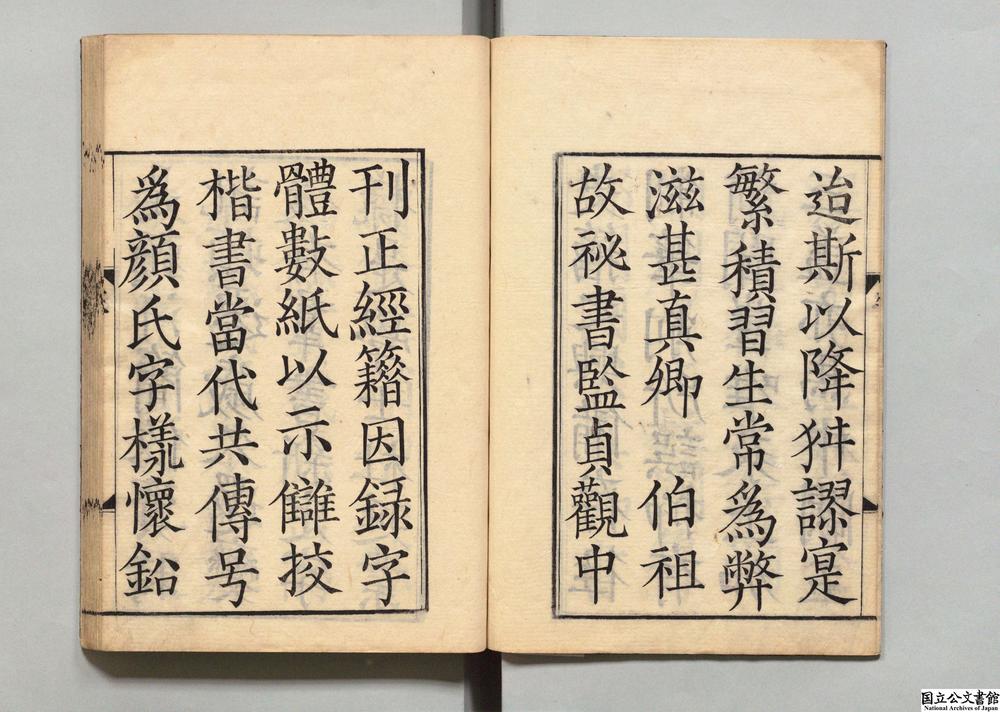 迨斯以降舛謬寔
繁積習生常為弊
滋甚真卿伯祖
故祕書監貞觀中
刊正經籍因録字
體數紙以示讎挍
楷書當代共傳号
為顔氏字樣懷鉛
国立公文書館
National Archives of Japan